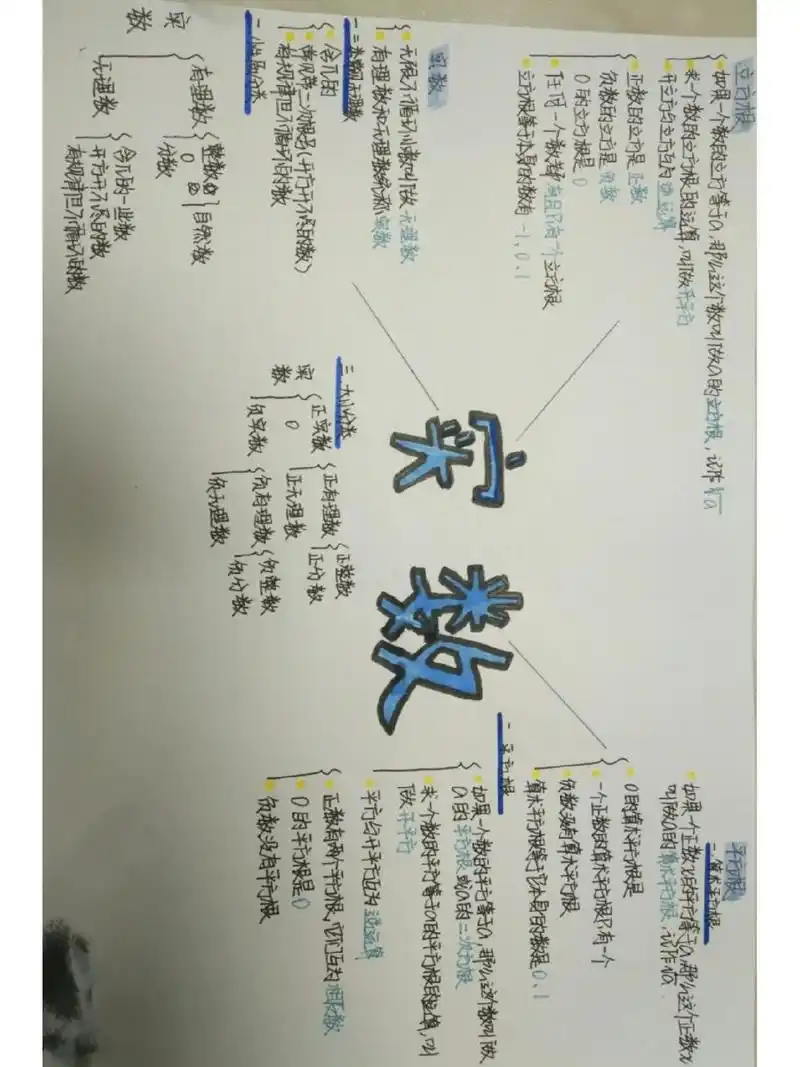 实数
立方根
如果一个数的立方等于a,那么这个数叫做a的立方根,记作∛a
求一个数的立方根的运算,叫做开平方
开立方与立方互为逆运算
正数的立方是正数
负数的立方是负数
0的立方根是0
任何一个数都有且只有一个立方根
立方根等于本身的数有-1,0,1
实数
无限不循环小数叫做无理数
有理数和无理数统称实数
一三类常见无理数
含π的
常见第二次根号(开方开不尽的数)
有规律但不循环的数
二性质分类
实数
有理数
整数
0
自然数
分数
无理数
含π的一些数
开方开不尽的数
有规律但不循环的数
三、大小分类
实数
正实数
正有理数
正整数
正分数
正无理数
0
负实数
负有理数
负整数
负分数
负无理数
平方根
二算术平方根
如果一个正数x的平方等于a,那么这个正数x
叫做a的算术平方根,记作√a
0的算术平方根是
一个正数的算术平方根只有一个
负数没有算术平方根
算术平方根等于它本身的数是0,1
一平方根
如果一个数的平方等于a,那么这个数叫做
a的平方根或a的二次方根
求一个数的平方等于a的平方根的运算,叫
做开平方
平方与开平方互为逆运算
正数有两个平方根,它们互为相反数
0的平方根是0
负数没有平方根